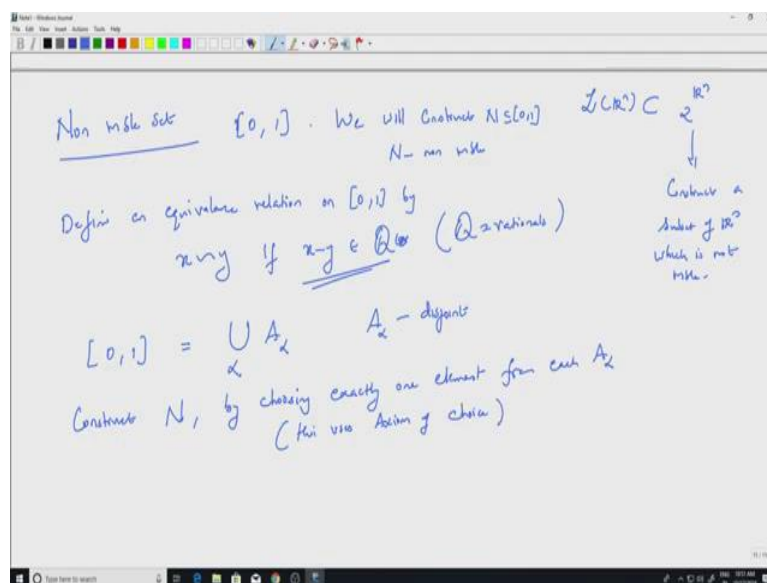 Note1 - Windows Journal
File Edit View Insert Actions Tools Help
Non mble set [0, 1] . We will Construct N ⊆ [0,1]
N - non mble
L(ℝⁿ) ⊂ 2^ℝⁿ
↓
Construct a
subset of ℝⁿ
which is not
mble.
Define an equivalence relation on [0,1] by
x ~ y if x-y ∈ Q (Q = rationals)
[0,1] = ⋃_α A_α A_α - disjoint
Construct N, by choosing exactly one element from each A_α
(this uses Axiom of choice)
Type here to search
ENG 10:11 AM